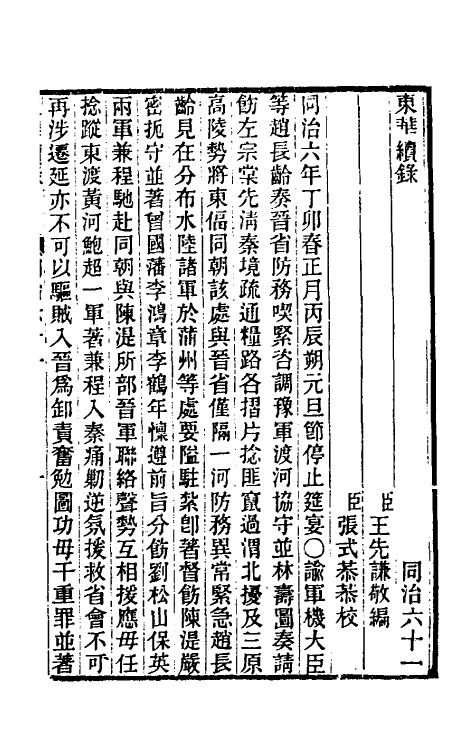 東華續錄 同治六十一
臣王先謙敬編
臣張式恭恭校
同治六年丁卯春正月丙辰朔元旦節停止筵宴○諭軍機大臣
等趙長齡奏晉省防務喫緊咨調豫軍渡河協守並林壽圖奏請
飭左宗棠先清秦境疏通糧路各摺片捻匪竄過渭北擾及三原
高陵勢將東偪同朝該處與晉省僅隔一河防務異常緊急趙長
齡見在分布水陸諸軍於蒲州等處要隘駐紮卽著督飭陳湜嚴
密扼守並著曾國藩李鴻章李鶴年懍遵前旨分飭劉松山保英
兩軍兼程馳赴同朝與陳湜所部晉軍聯絡聲勢互相援應毋任
捻蹤東渡黃河鮑超一軍著兼程入秦痛勦逆氛援救省會不可
再涉遷延亦不可以驅賊入晉爲卸責奮勉圖功毋干重罪並著